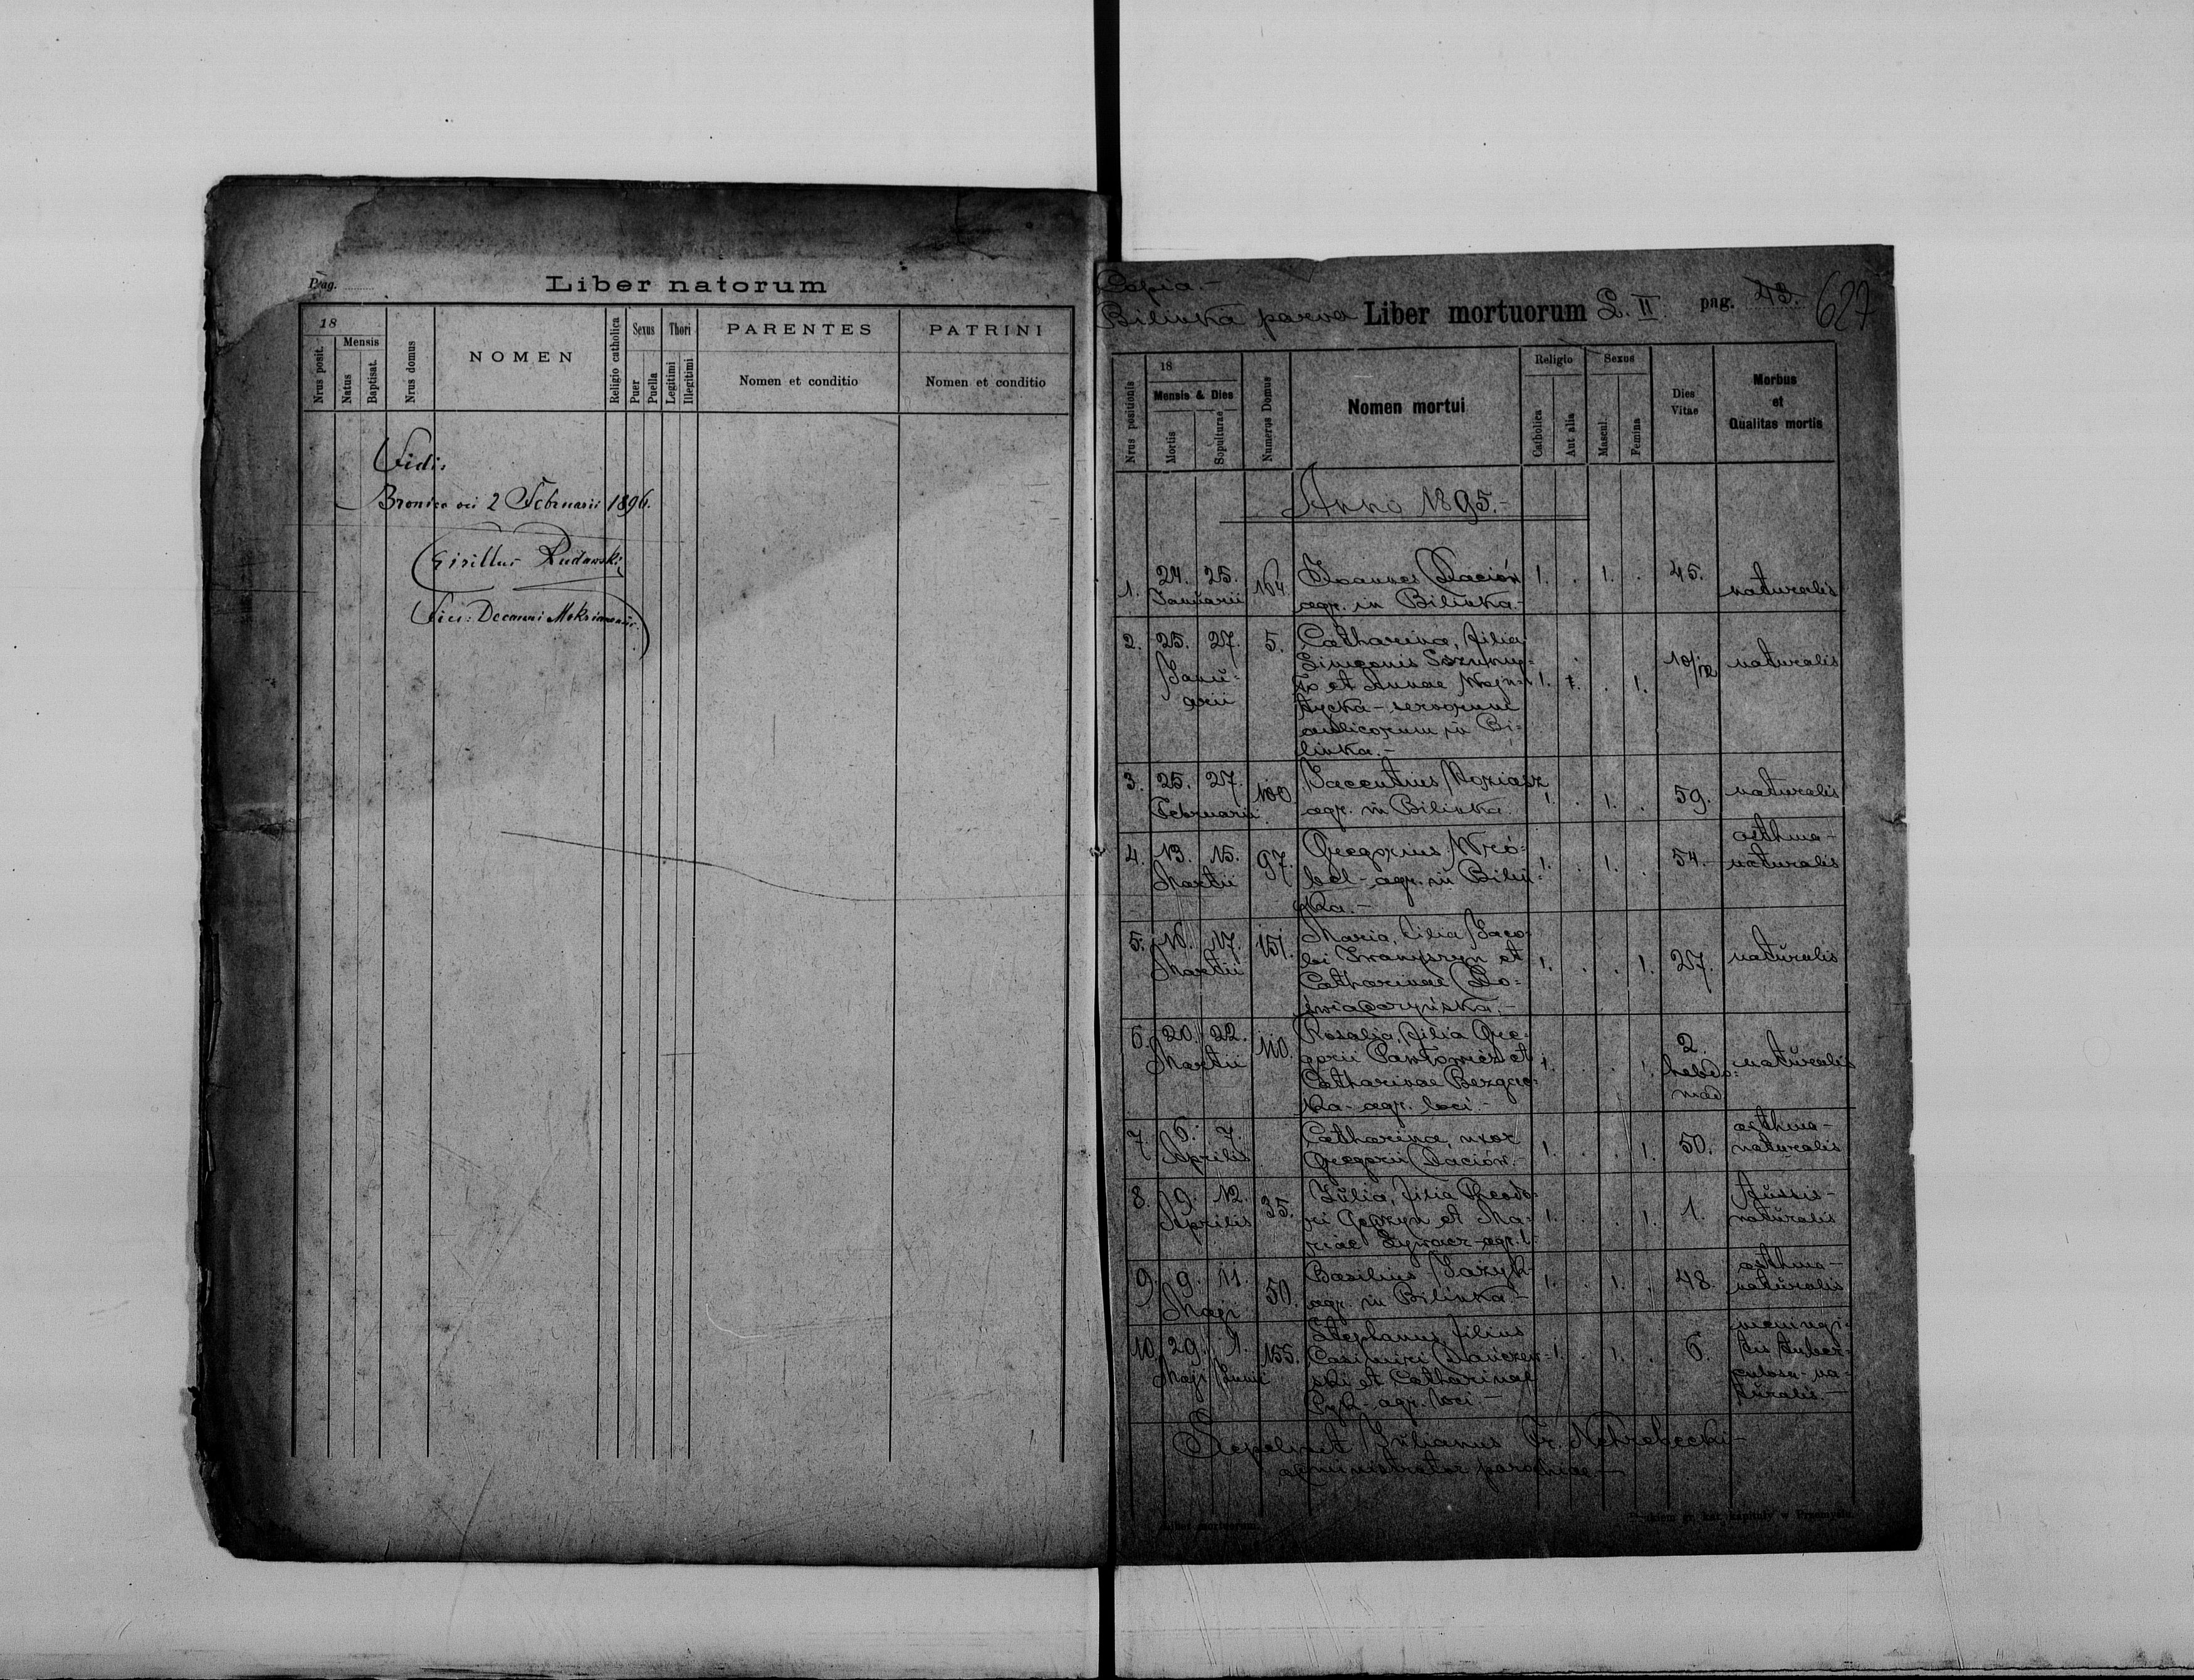 Pag.
Liber natorum
18
Nrus posit.
Mensis
Natus
Baptisat.
Nrus domus
NOMEN
Religio catholica
Sexus
Puer
Puella
Thori
Legitimi
Illegitimi
PARENTES
Nomen et conditio
PATRINI
Nomen et conditio
Vidi
Bronica 2 Februarii 1896.
Cirillus Rudawski
Vice-Decanus
Copia.-
Bilinka parva Liber mortuorum L. II. pag. 43. 627
Nrus positionis
18
Mensis & Dies
Mortis
Sepulturae
Numerus Domus
Nomen mortui
Religio
Catholica
Aut alia
Sexus
Mascul.
Femina
Dies Vitae
Morbus
et
Qualitas mortis
Anno 1895.-
1. 24. 25. Januarii 164. Joannes Dación 1. . 1. . 45. naturalis
agr. in Bilinka.-
2. 25. 27. Januarii 5. Catharina, filia
Simeonis
et Annae
tycka - servorum
aulicorum in Bi-
linka.- 1. . . 1. 10/12 naturalis
3. 25. 27. Februarii 100. agr. in Bilinka. 1. . 1. . 59. naturalis
4. 13. 15. Martii 97. Gregorius Wró-
bel - agr. in Bilin-
ka.- 1. . 1. . 54. asthma-
naturalis
5. 16. 17. Martii 151. Maria, filia Jaco-
bi Iwanyszyn et
Catharinae Do-
świadczyńska.- 1. . . 1. 27. naturalis
6. 20. 22. Martii 110. Rosalia, filia Gre-
gorii Pawłowicz et
Catharinae
agr. loci - 1. . . 1. 2. hebdo-
mad naturalis
7. 6. 7. Aprilis Catharina, uxor
Gregorii Dación.- 1. . . 1. 50. asthma-
naturalis
8. 9. 12. Aprilis 35. Julia, filia Theodo-
ri et Ma-
riae Zywacz - agr. l. 1. . . 1. 1. tussis-
naturalis
9. 9. 11. Maji 50. Basilius
agr. in Bilinka.- 1. . 1. . 48. asthma-
naturalis
10. 29. 1. Maji Junii 155. Stephanus, filius
Casimiri
et Catharinae
Cyk - agr. loci.- 1. . 1. . 6. meningi-
tis tuber-
culosa - na-
turalis.-
Sepelivit Julianus Fr. Nehrebecki-
administrator parochiae.-
Liber mortuorum.
Drukiem gr. kat. kapituły w Przemyślu.